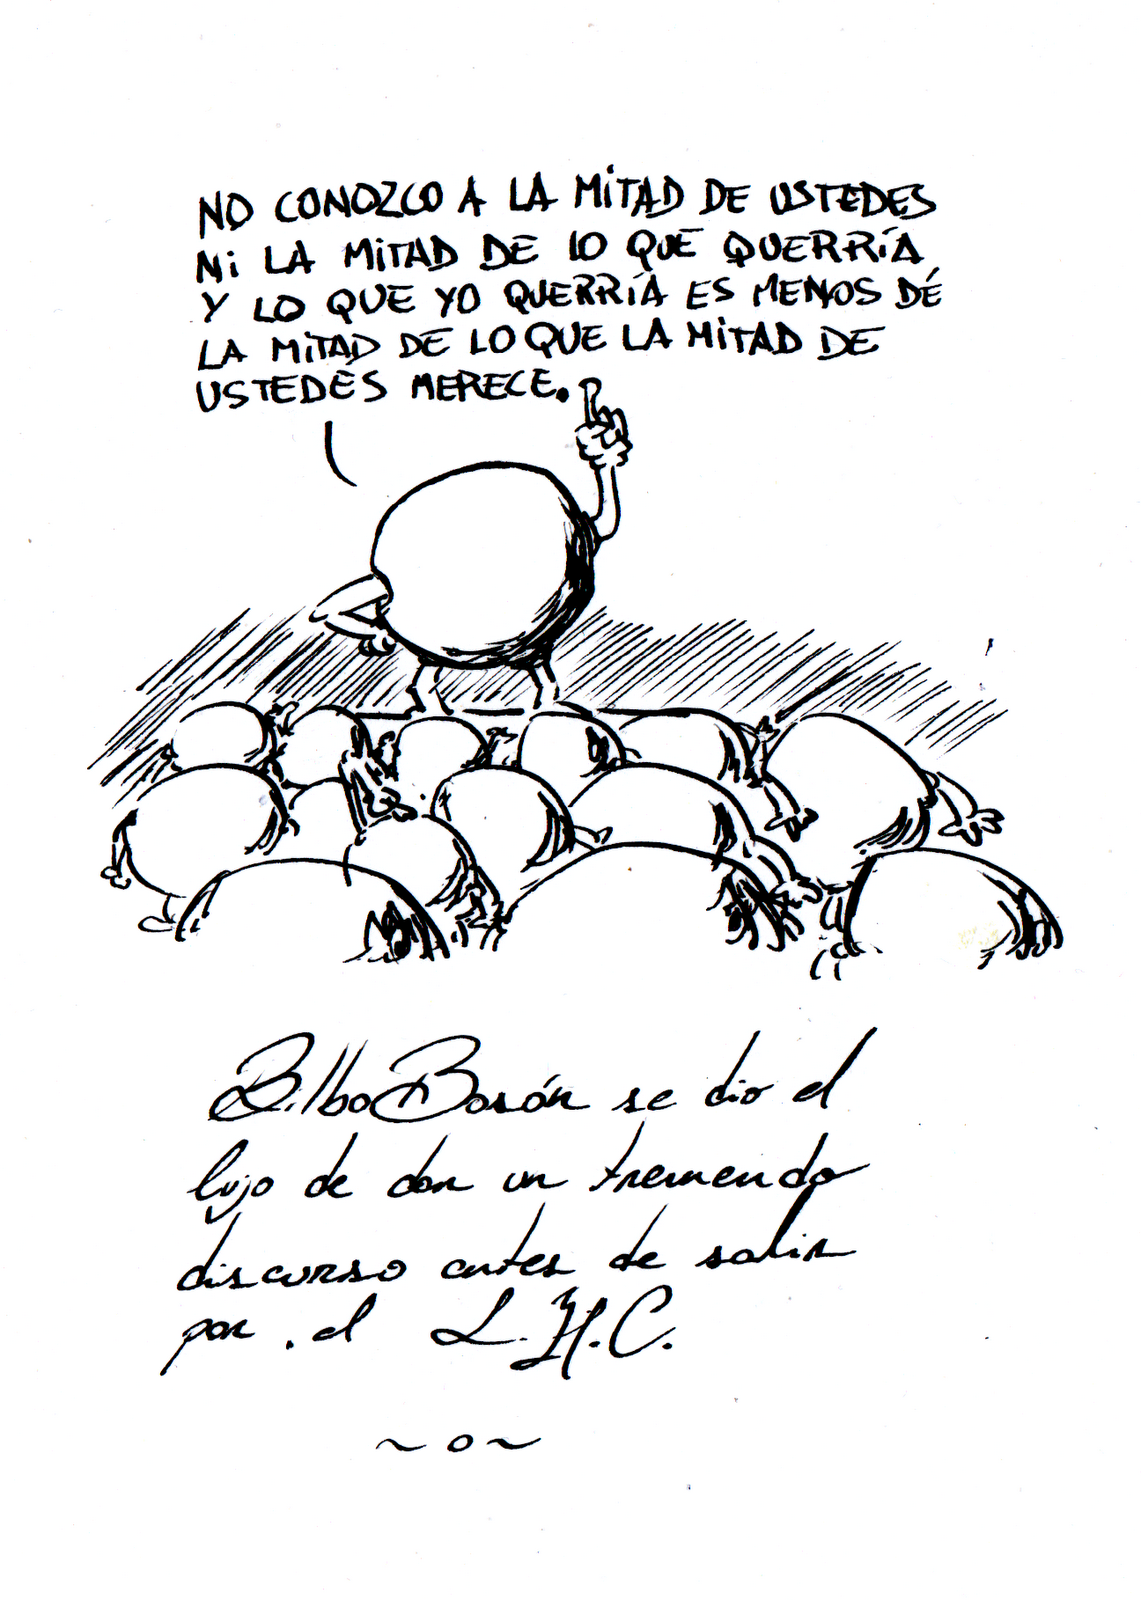 NO CONOZCO A LA MITAD DE USTEDES
NI LA MITAD DE LO QUE QUERRÍA
Y LO QUE YO QUERRÍA ES MENOS DE
LA MITAD DE LO QUE LA MITAD DE
USTEDES MERECE.
Bilbo Bosón se dio el
lujo de dar un tremendo
discurso antes de salir
por el L.H.C.
~o~